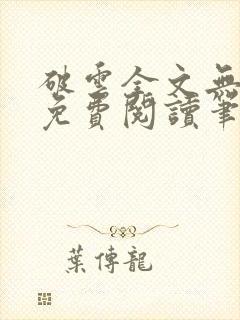 破雲全文無
免費閱讀筆
葉傳龍